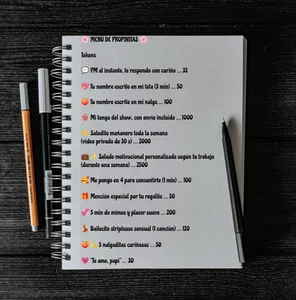 🌸 MENÚ DE PROPINITAS 🌸
Tokens
💬 PM al instante, te respondo con cariño ... 33
💖 Tu nombre escrito en mi teta (3 min) ... 50
🍑 Tu nombre escrito en mi nalga ... 100
👙 Mi tanga del show, con envío incluido ... 1000
✨ Saludito mañanero toda la semana
(video privado de 30 s) ... 2000
💼✨ Salude motivacional personalizado según tu trabajo
(durante una semana) ... 2500
🥰 Me pongo en 4 para consentirte (1 min) ... 100
🎁 Mención especial por tu regalito ... 50
💕 5 min de mimos y placer suave ... 200
💃 Bailecito striptease sensual (1 canción) ... 120
🍑✨ 5 nalgaditas cariñosas ... 50
💗 "Te amo, papi" ... 30